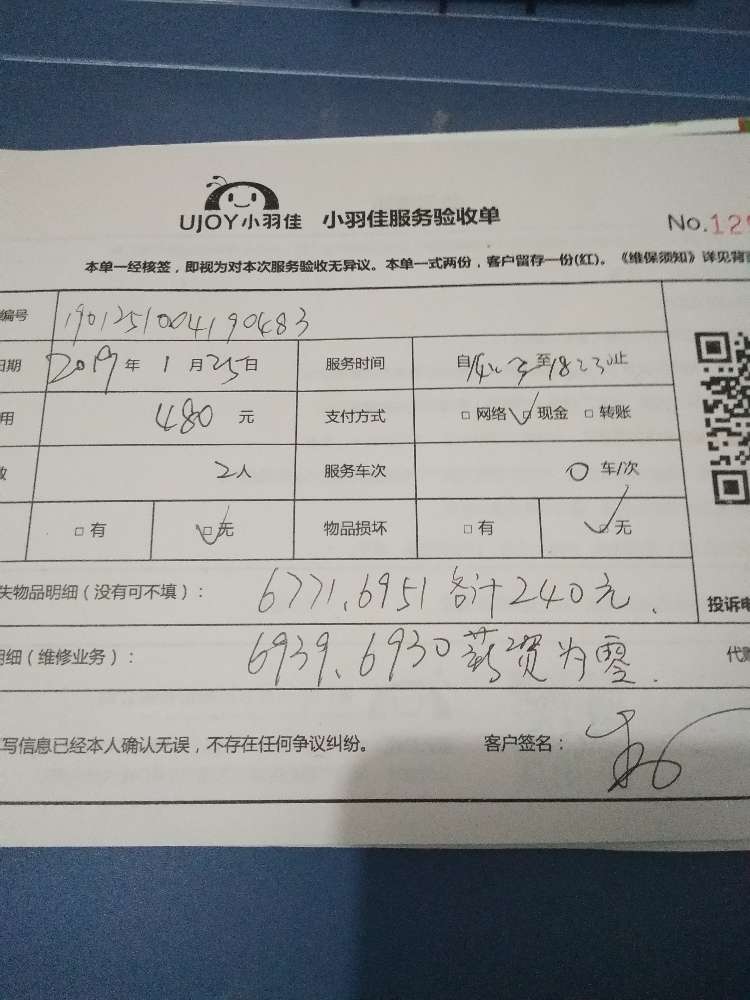 UJOY小羽佳 小羽佳服务验收单 No.12
本单一经核签，即视为对本次服务验收无异议。本单一式两份，客户留存一份(红)。《维保须知》详见背
编号 1901251004190483
日期 2019年1月25日 服务时间 自 至1823止
用 480元 支付方式 □网络 □现金 □转账
数 2人 服务车次 0车/次
□有 □无 物品损坏 □有 □无
失物品明细（没有可不填）： 6771、6951各计240元. 投诉电
明细（维修业务）： 6939、6930薪资为零. 代
写信息已经本人确认无误，不存在任何争议纠纷。 客户签名：